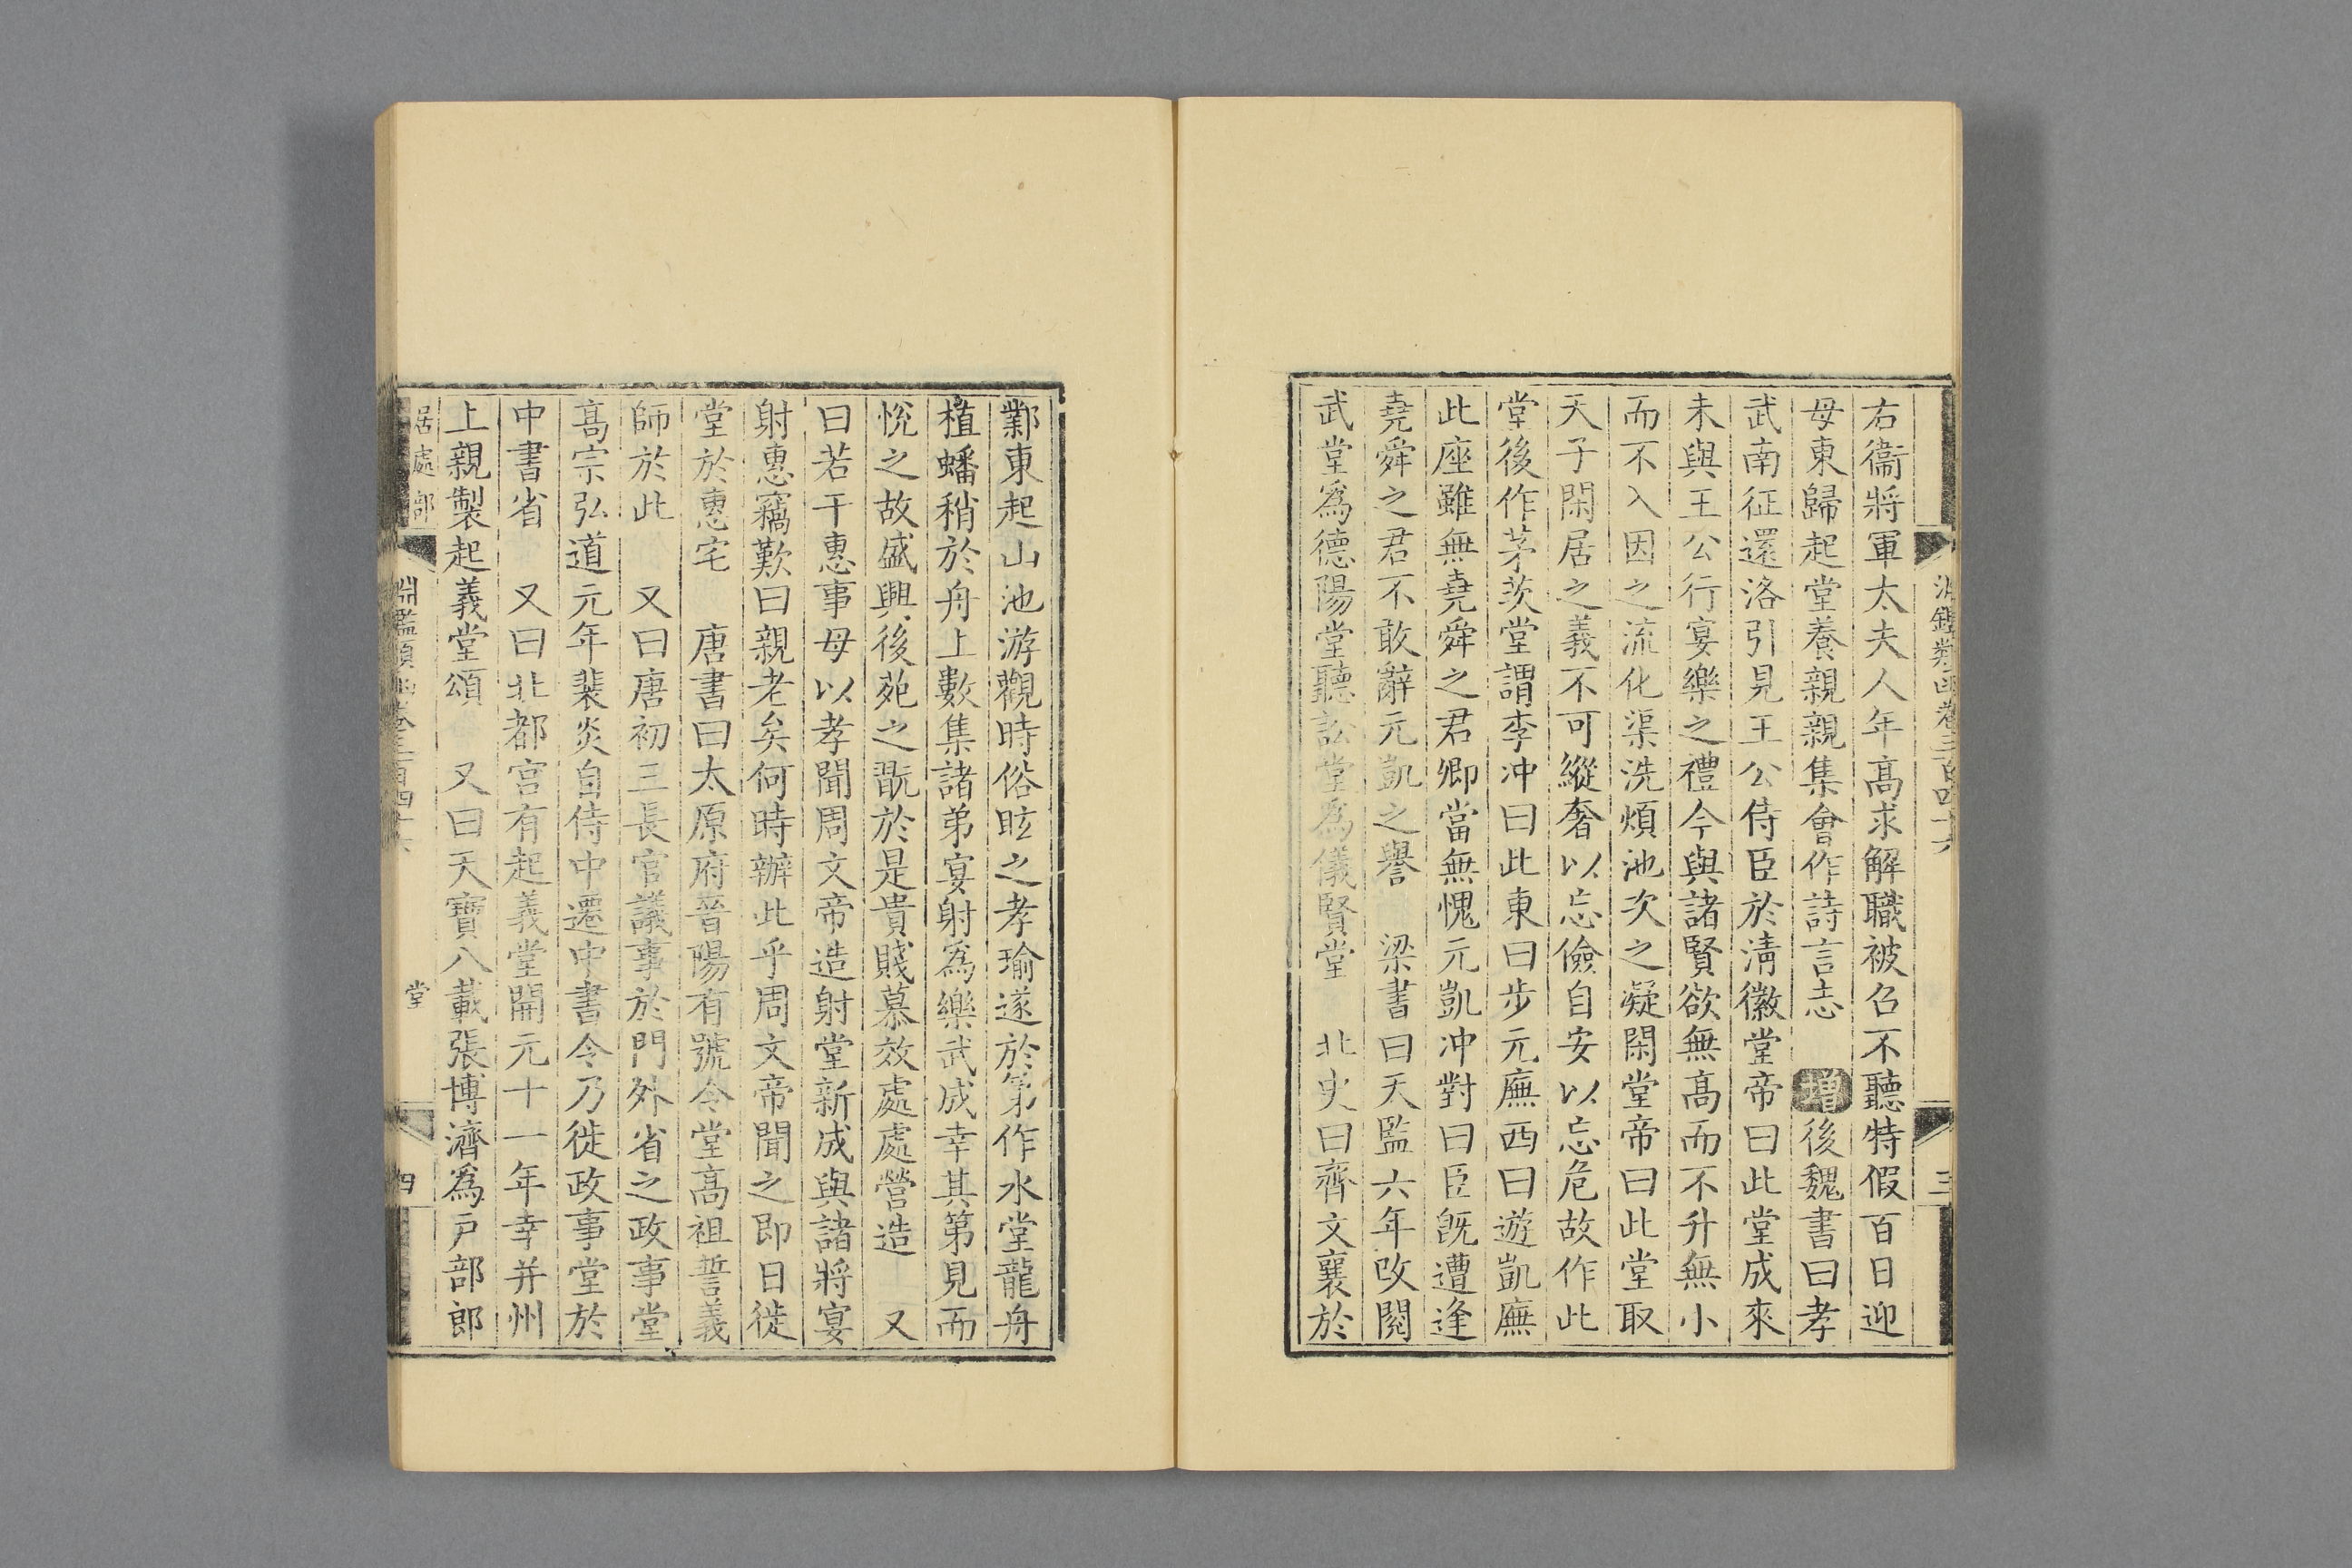 淵鑑類函卷三百四十六 三
右衞將軍太夫人年高求解職被召不聽特假百日迎
母東歸起堂養親親集會作詩言志 增後魏書曰孝
武南征還洛引見王公侍臣於淸徽堂帝曰此堂成來
未與王公行宴樂之禮今與諸賢欲無高而不升無小
而不入因之流化渠洗煩池次之凝閑堂帝曰此堂取
天子閑居之義不可縱奢以忘儉自安以忘危故作此
堂後作茅茨堂謂李沖曰此東曰步元廡西曰遊凱廡
此座雖無堯舜之君卿當無愧元凱沖對曰臣旣遭逢
堯舜之君不敢辭元凱之譽 梁書曰天監六年改閱
武堂爲德陽堂聽訟堂爲儀賢堂 北史曰齊文襄於
鄴東起山池游觀時俗眩之孝瑜遂於第作水堂龍舟
植蟠矟於舟上數集諸弟宴射爲樂武成幸其第見而
悅之故盛興後苑之翫於是貴賤慕效處處營造 又
曰若干惠事母以孝聞周文帝造射堂新成與諸將宴
射惠竊歎曰親老矣何時辦此乎周文帝聞之即日徙
堂於惠宅 唐書曰太原府晉陽有號令堂高祖誓義
師於此 又曰唐初三長官議事於門外省之政事堂
高宗弘道元年裴炎自侍中遷中書令乃徙政事堂於
中書省 又曰北都宮有起義堂開元十一年幸并州
上親製起義堂頌 又曰天寶八載張博濟爲戶部郎
居處部 淵鑑類函卷三百四十六 堂 四